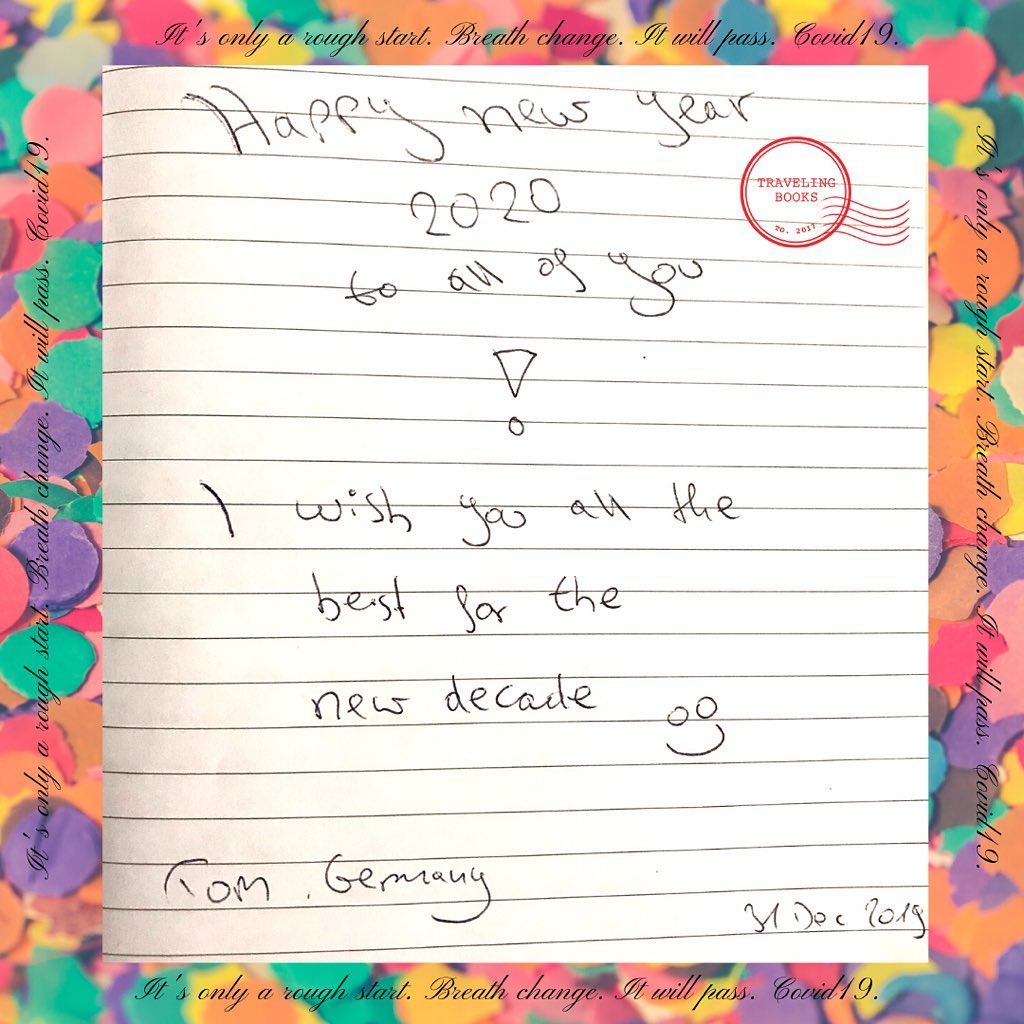 It's only a rough start. Breath change. It will pass. Covid19.
Happy new year
2020
TRAVELING
BOOKS
20. 2017
to all of you
!
I wish you all the
best for the
new decade
Tom, Germany
31 Dec 2019
It's only a rough start. Breath change. It will pass. Covid19.
It's only a rough start. Breath change. It will pass. Covid19.
It's only a rough start. Breath change. It will pass. Covid19.